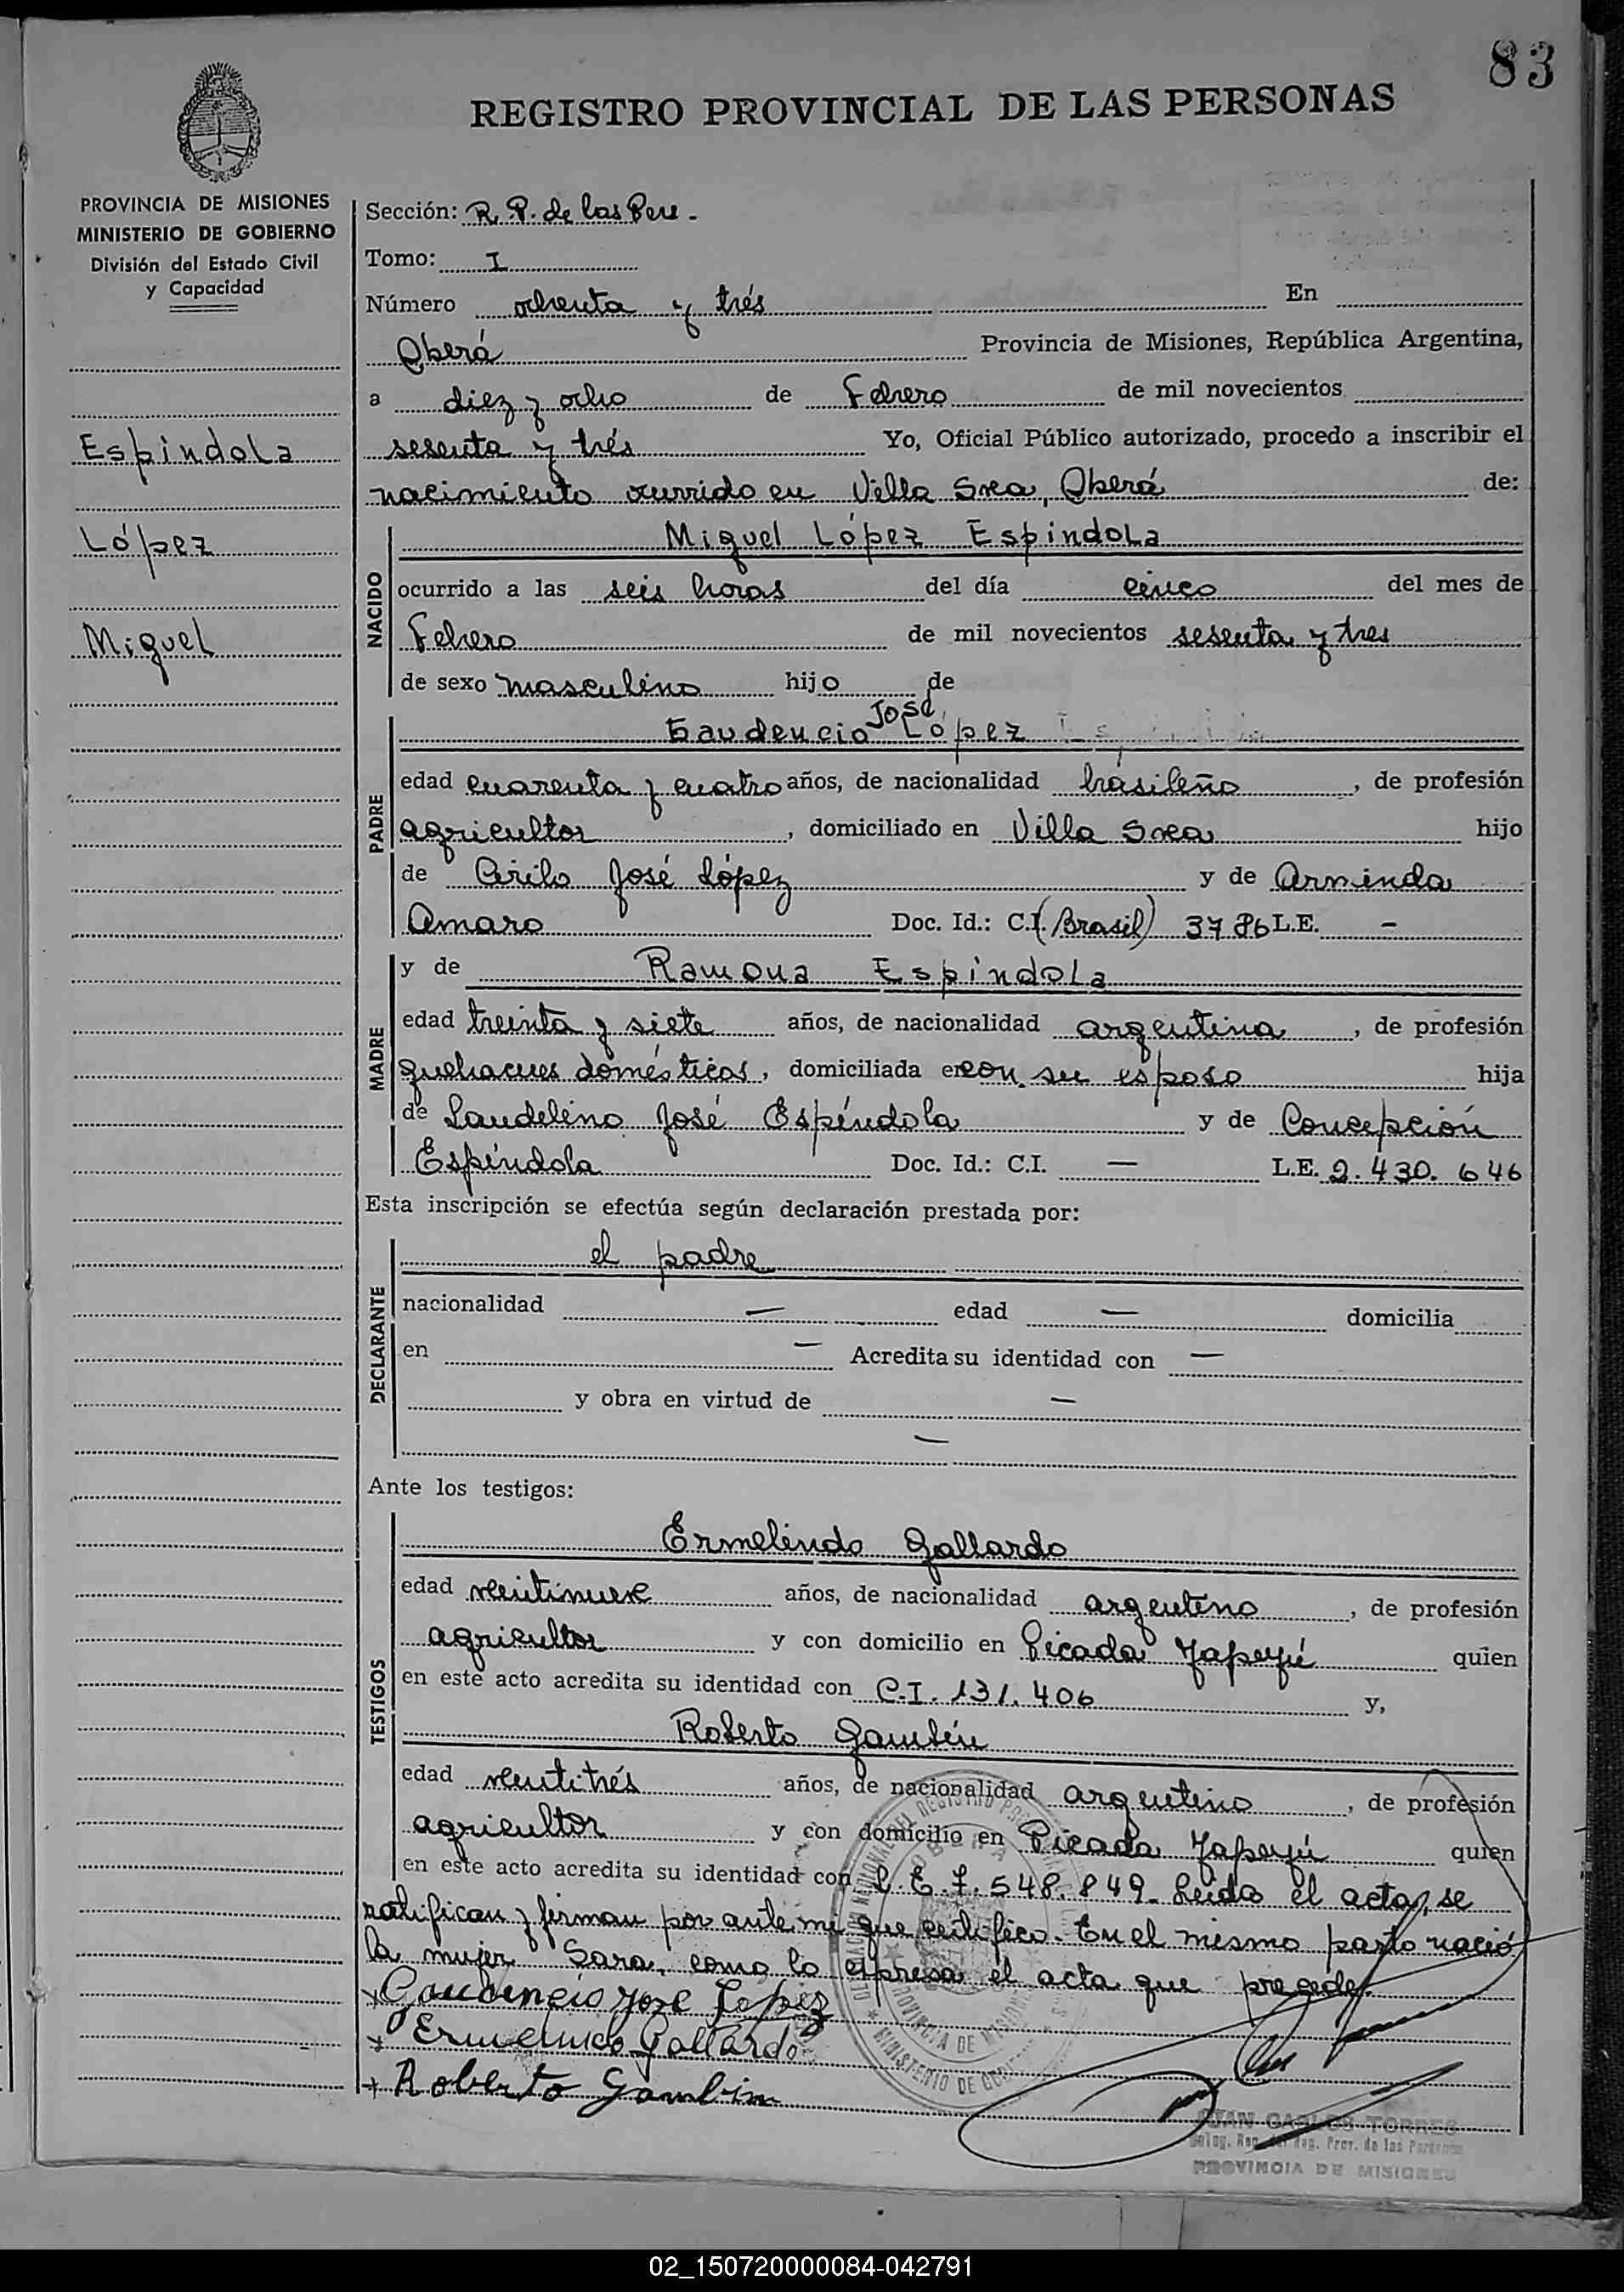 83
REGISTRO PROVINCIAL DE LAS PERSONAS
PROVINCIA DE MISIONES
MINISTERIO DE GOBIERNO
División del Estado Civil
y Capacidad
Espíndola
López
Miguel
Sección: R. P. de las Pers.
Tomo: I
Número ochenta y trés En
Oberá Provincia de Misiones, República Argentina,
a diez y ocho de Febrero de mil novecientos
sesenta y trés Yo, Oficial Público autorizado, procedo a inscribir el
nacimiento ocurrido en Villa Svea, Oberá de:
NACIDO
Miguel López Espíndola
ocurrido a las seis horas del día cinco del mes de
Febrero de mil novecientos sesenta y tres
de sexo masculino hijo de
PADRE
Gaudencio José López
edad cuarenta y cuatro años, de nacionalidad brasileño, de profesión
agricultor, domiciliado en Villa Svea hijo
de Cirilo José López y de Arminda
Amaro Doc. Id.: C.I. (Brasil) 3786 L.E. -
MADRE
y de Ramona Espíndola
edad treinta y siete años, de nacionalidad argentina, de profesión
quehaceres domésticos, domiciliada en con su esposo hija
de Laudelino José Espíndola y de Concepción
Espíndola Doc. Id.: C.I. — L.E. 2.430.646
Esta inscripción se efectúa según declaración prestada por:
DECLARANTE
el padre
nacionalidad — edad — domicilia
en — Acredita su identidad con —
y obra en virtud de —
—
Ante los testigos:
TESTIGOS
Ermelindo Gallardo
edad veintinueve años, de nacionalidad argentino, de profesión
agricultor y con domicilio en Picada Yapeyú quien
en este acto acredita su identidad con C.I. 131.406 y,
Roberto Gambín
edad veintitrés años, de nacionalidad argentino, de profesión
agricultor y con domicilio en Picada Yapeyú quien
en este acto acredita su identidad con L.E. 7.548.849. Leída el acta, se
ratifican y firman por ante mí que certifico. En el mismo parto nació
la mujer Sara, como lo expresa el acta que precede.
+ Gaudencio José López
+ Ermelindo Gallardo
+ Roberto Gambin
OBERA
PROVINCIA DE MISIONES
MINISTERIO DE GOBIERNO
JUAN CARLOS TORRES
Prov. de las Personas
PROVINCIA DE MISIONES
02_150720000084-042791